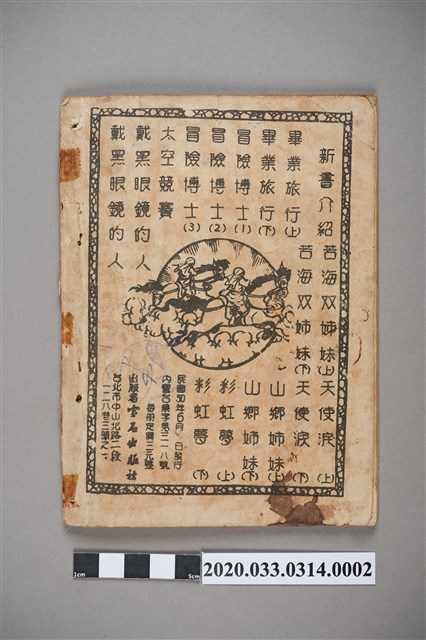 新書介紹
苦海双姊妹(上)
天使淚(上)
苦海双姊妹(下)
天使淚(下)
畢業旅行(上)
山鄉姊妹(上)
畢業旅行(下)
山鄉姊妹(下)
冒險博士(1)
彩虹夢(上)
冒險博士(2)
彩虹夢(下)
冒險博士(3)
太空競賽
戴黑眼鏡的人
戴黑眼鏡的人
民國50年6月 日發行
每冊定價三元整
出版者宝石出版社
台北市中山北路二段
一二八巷三號之一
1cm
5cm
2020.033.0314.0002